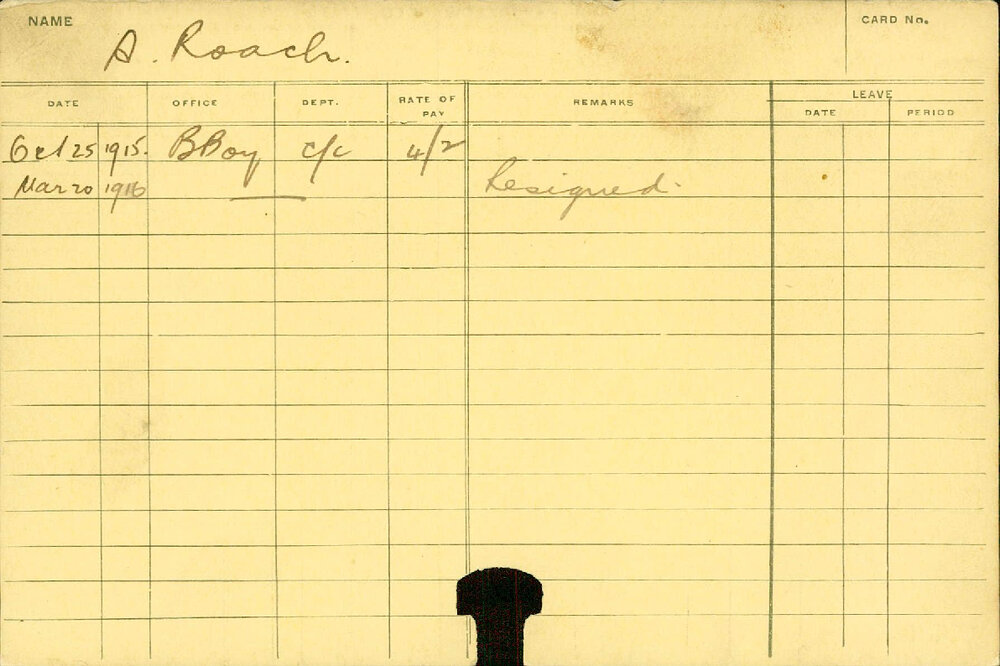 NAME
A. Roach.
CARD No.
DATE OFFICE DEPT. RATE OF PAY REMARKS LEAVE
DATE PERIOD
Oct 25 1915. BBoy c/c 4/2
Mar 20 1916 — Resigned.